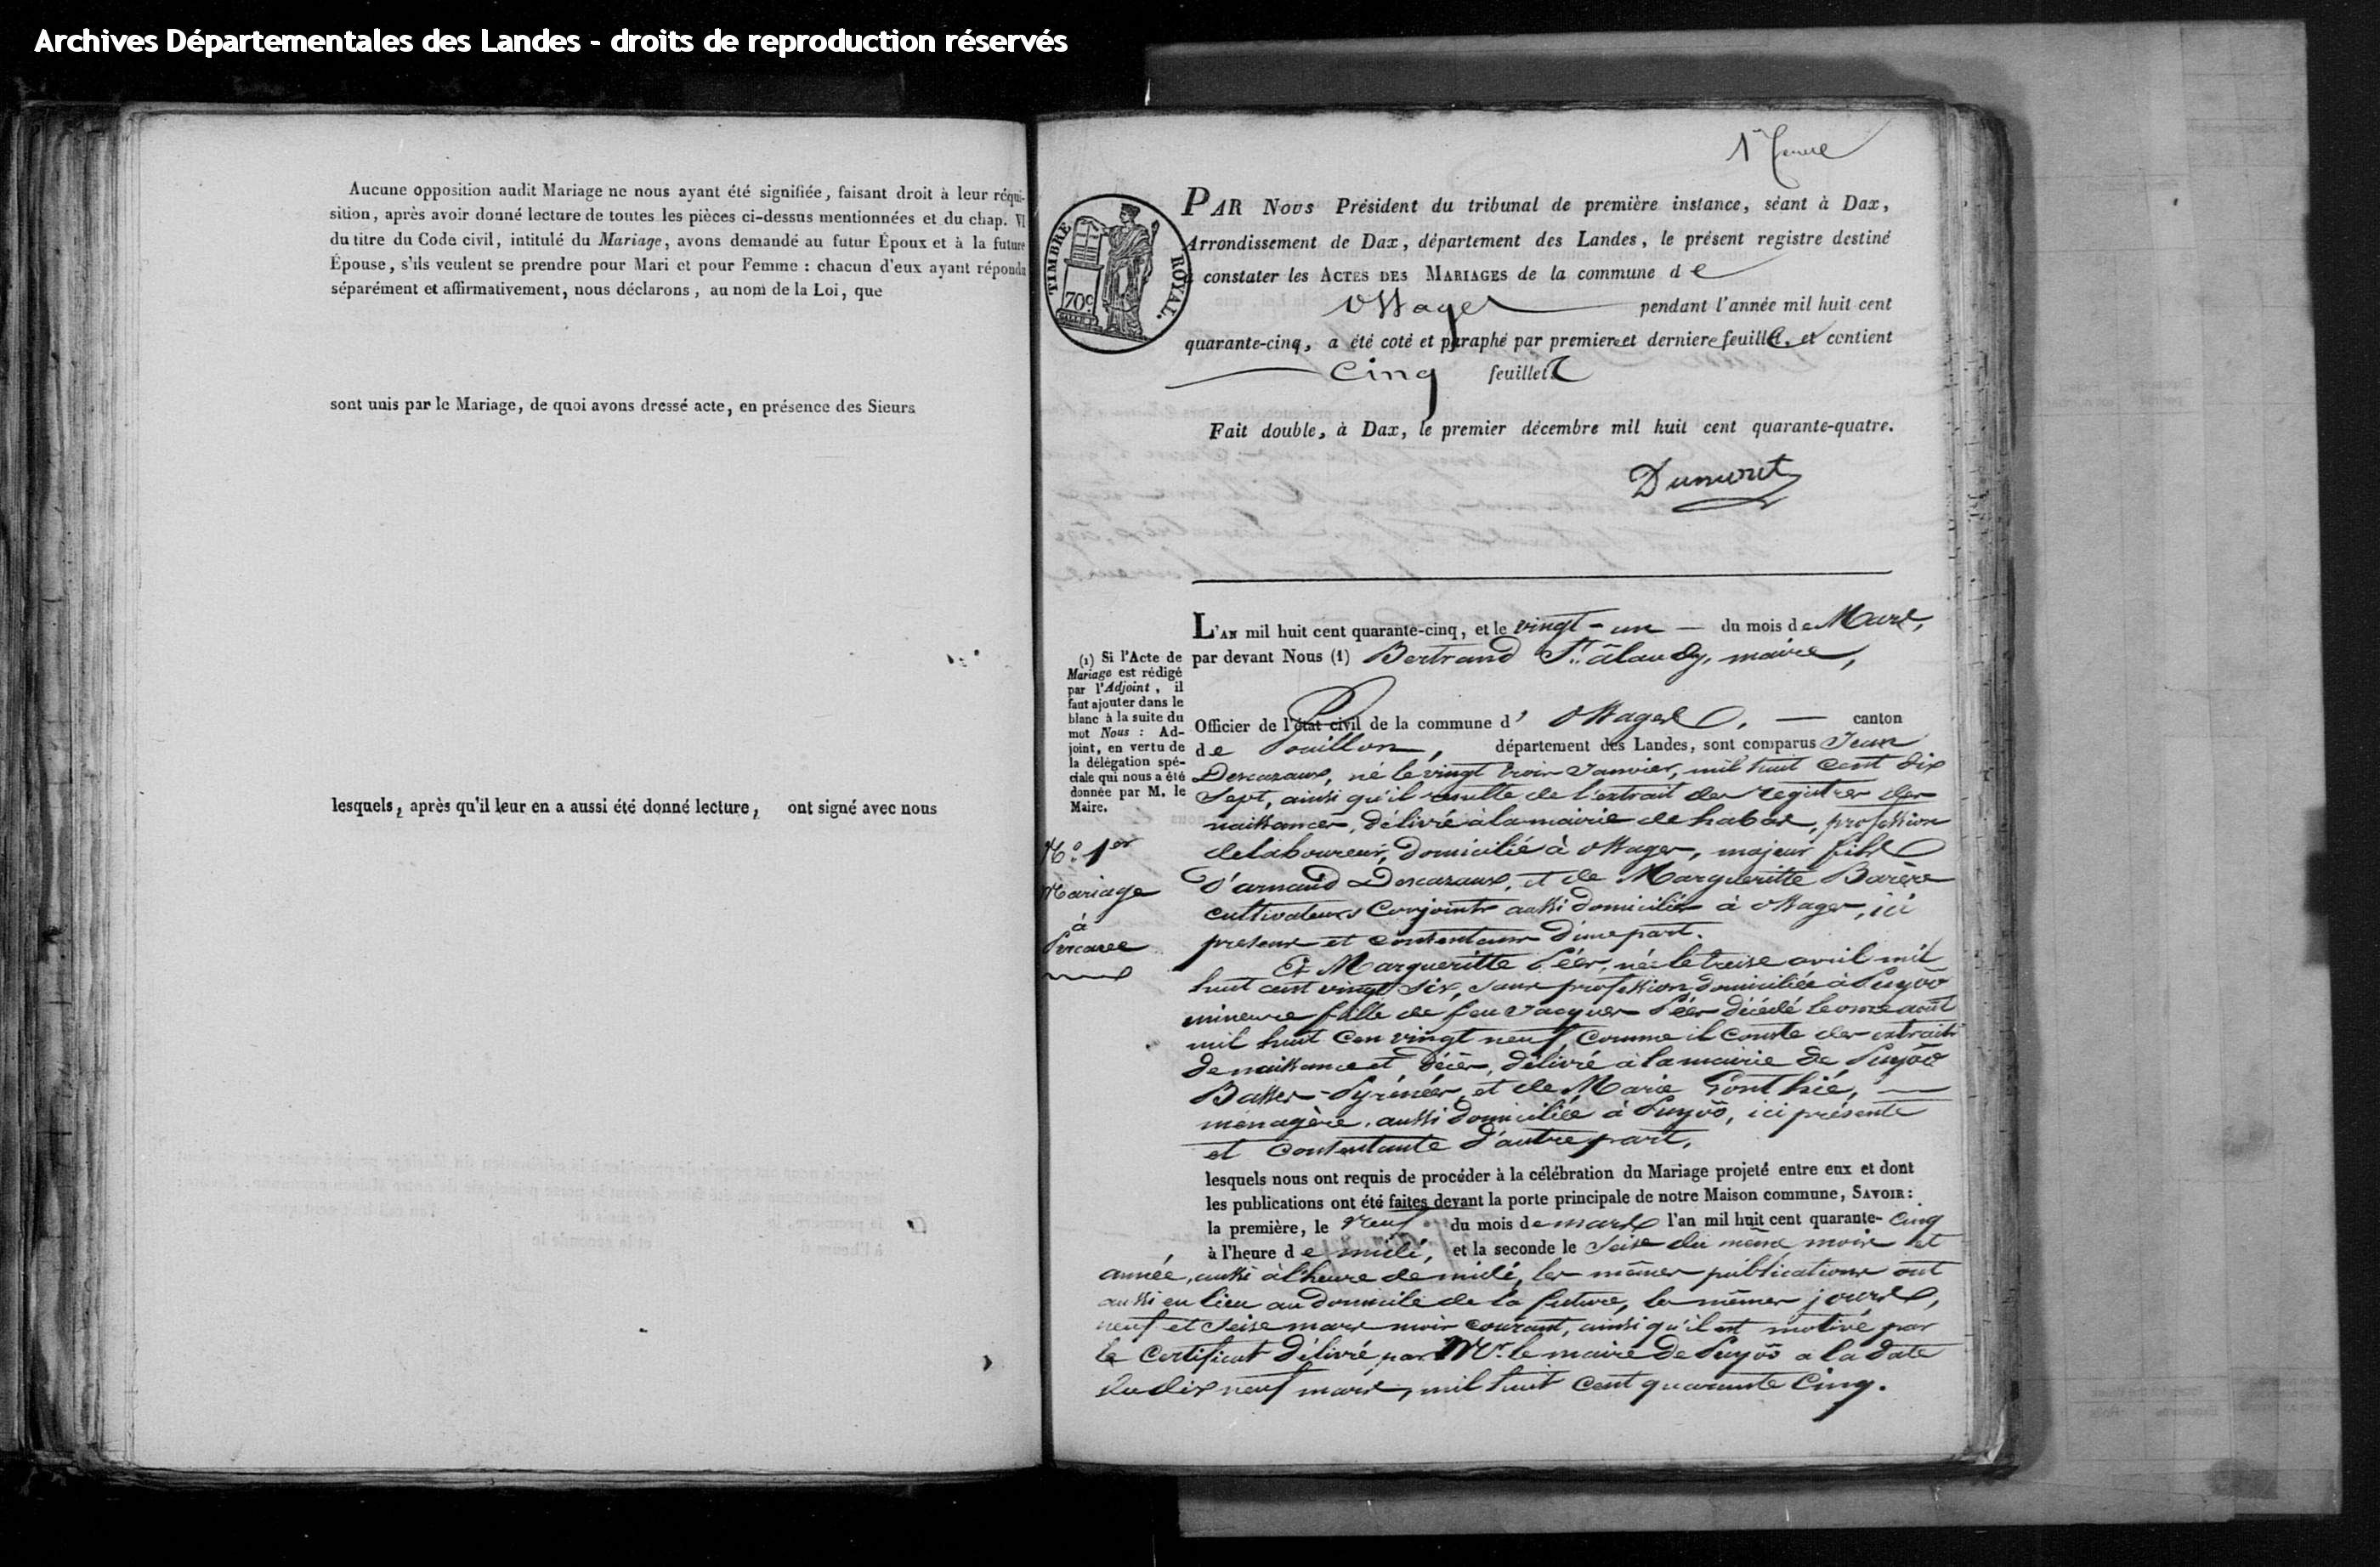 Archives Départementales des Landes - droits de reproduction réservés
Aucune opposition audit Mariage ne nous ayant été signifiée, faisant droit à leur réqui-
sition, après avoir donné lecture de toutes les pièces ci-dessus mentionnées et du chap. VI
du titre du Code civil, intitulé du Mariage, avons demandé au futur Époux et à la future
Épouse, s'ils veulent se prendre pour Mari et pour Femme : chacun d'eux ayant répondu
séparément et affirmativement, nous déclarons, au nom de la Loi, que
sont unis par le Mariage, de quoi avons dressé acte, en présence des Sieurs
lesquels, après qu'il leur en a aussi été donné lecture, ont signé avec nous
TIMBRE ROYAL.
70c
PAR Nous Président du tribunal de première instance, séant à Dax,
Arrondissement de Dax, département des Landes, le présent registre destiné
constater les ACTES DES MARIAGES de la commune de
Ossages pendant l'année mil huit cent
quarante-cinq, a été coté et paraphé par premiere et derniere feuille, et contient
Cinq feuillets
Fait double, à Dax, le premier décembre mil huit cent quarante-quatre.
L'AN mil huit cent quarante-cinq, et le vingt-un du mois de Mars,
par devant Nous (1) Bertrand St. alaudy, maire,
Officier de l'état civil de la commune d' Ossages, canton
de Pouillon, département des Landes, sont comparus Jean
Descazaux, né le vingt trois Janvier, mil huit cent dix
Sept, ainsi qu'il résulte de l'extrait des registres des
naissances, délivré à la mairie de habas, profession
de laboureur, domicilié à Ossages, majeur fils
d'arnaud Descazaux, et de Margueritte Barère
cultivateurs Conjoints aussi domiciliés à Ossages, ici
presens et consentans d'une part.
Et Margueritte Péés, née le treise avril mil
huit cent vingt six, sans profession domiciliée à Puyôô
mineure fille de feu Jacques Péés décédé le onze août
mil huit cen vingt neuf, comme il conste des extraits
de naissance et décès, délivré à la mairie de Puyôô
Basses-Pyrénées, et de Marie
ménagère, aussi domiciliée à Puyôô, ici présente
et consentante d'autre part,
lesquels nous ont requis de procéder à la célébration du Mariage projeté entre eux et dont
les publications ont été faites devant la porte principale de notre Maison commune, SAVOIR :
la première, le neuf du mois de mars l'an mil huit cent quarante-cinq
à l'heure de midi, et la seconde le seise du même mois et
année, aussi à l'heure de midi, les mêmes publications ont
aussi eu lieu au domicile de la future, les mêmes jours,
neuf et seise mars mois courant, ainsi qu'il est motivé par
le Certificat délivré par Mr. le maire de Puyôô a la date
du dix neuf mars, mil huit cent quarante Cinq.
(1) Si l'Acte de
Mariage est rédigé
par l'Adjoint, il
faut ajouter dans le
blanc à la suite du
mot Nous : Ad-
joint, en vertu de
la délégation spé-
ciale qui nous a été
donnée par M. le
Maire.
No. 1er
Mariage
à